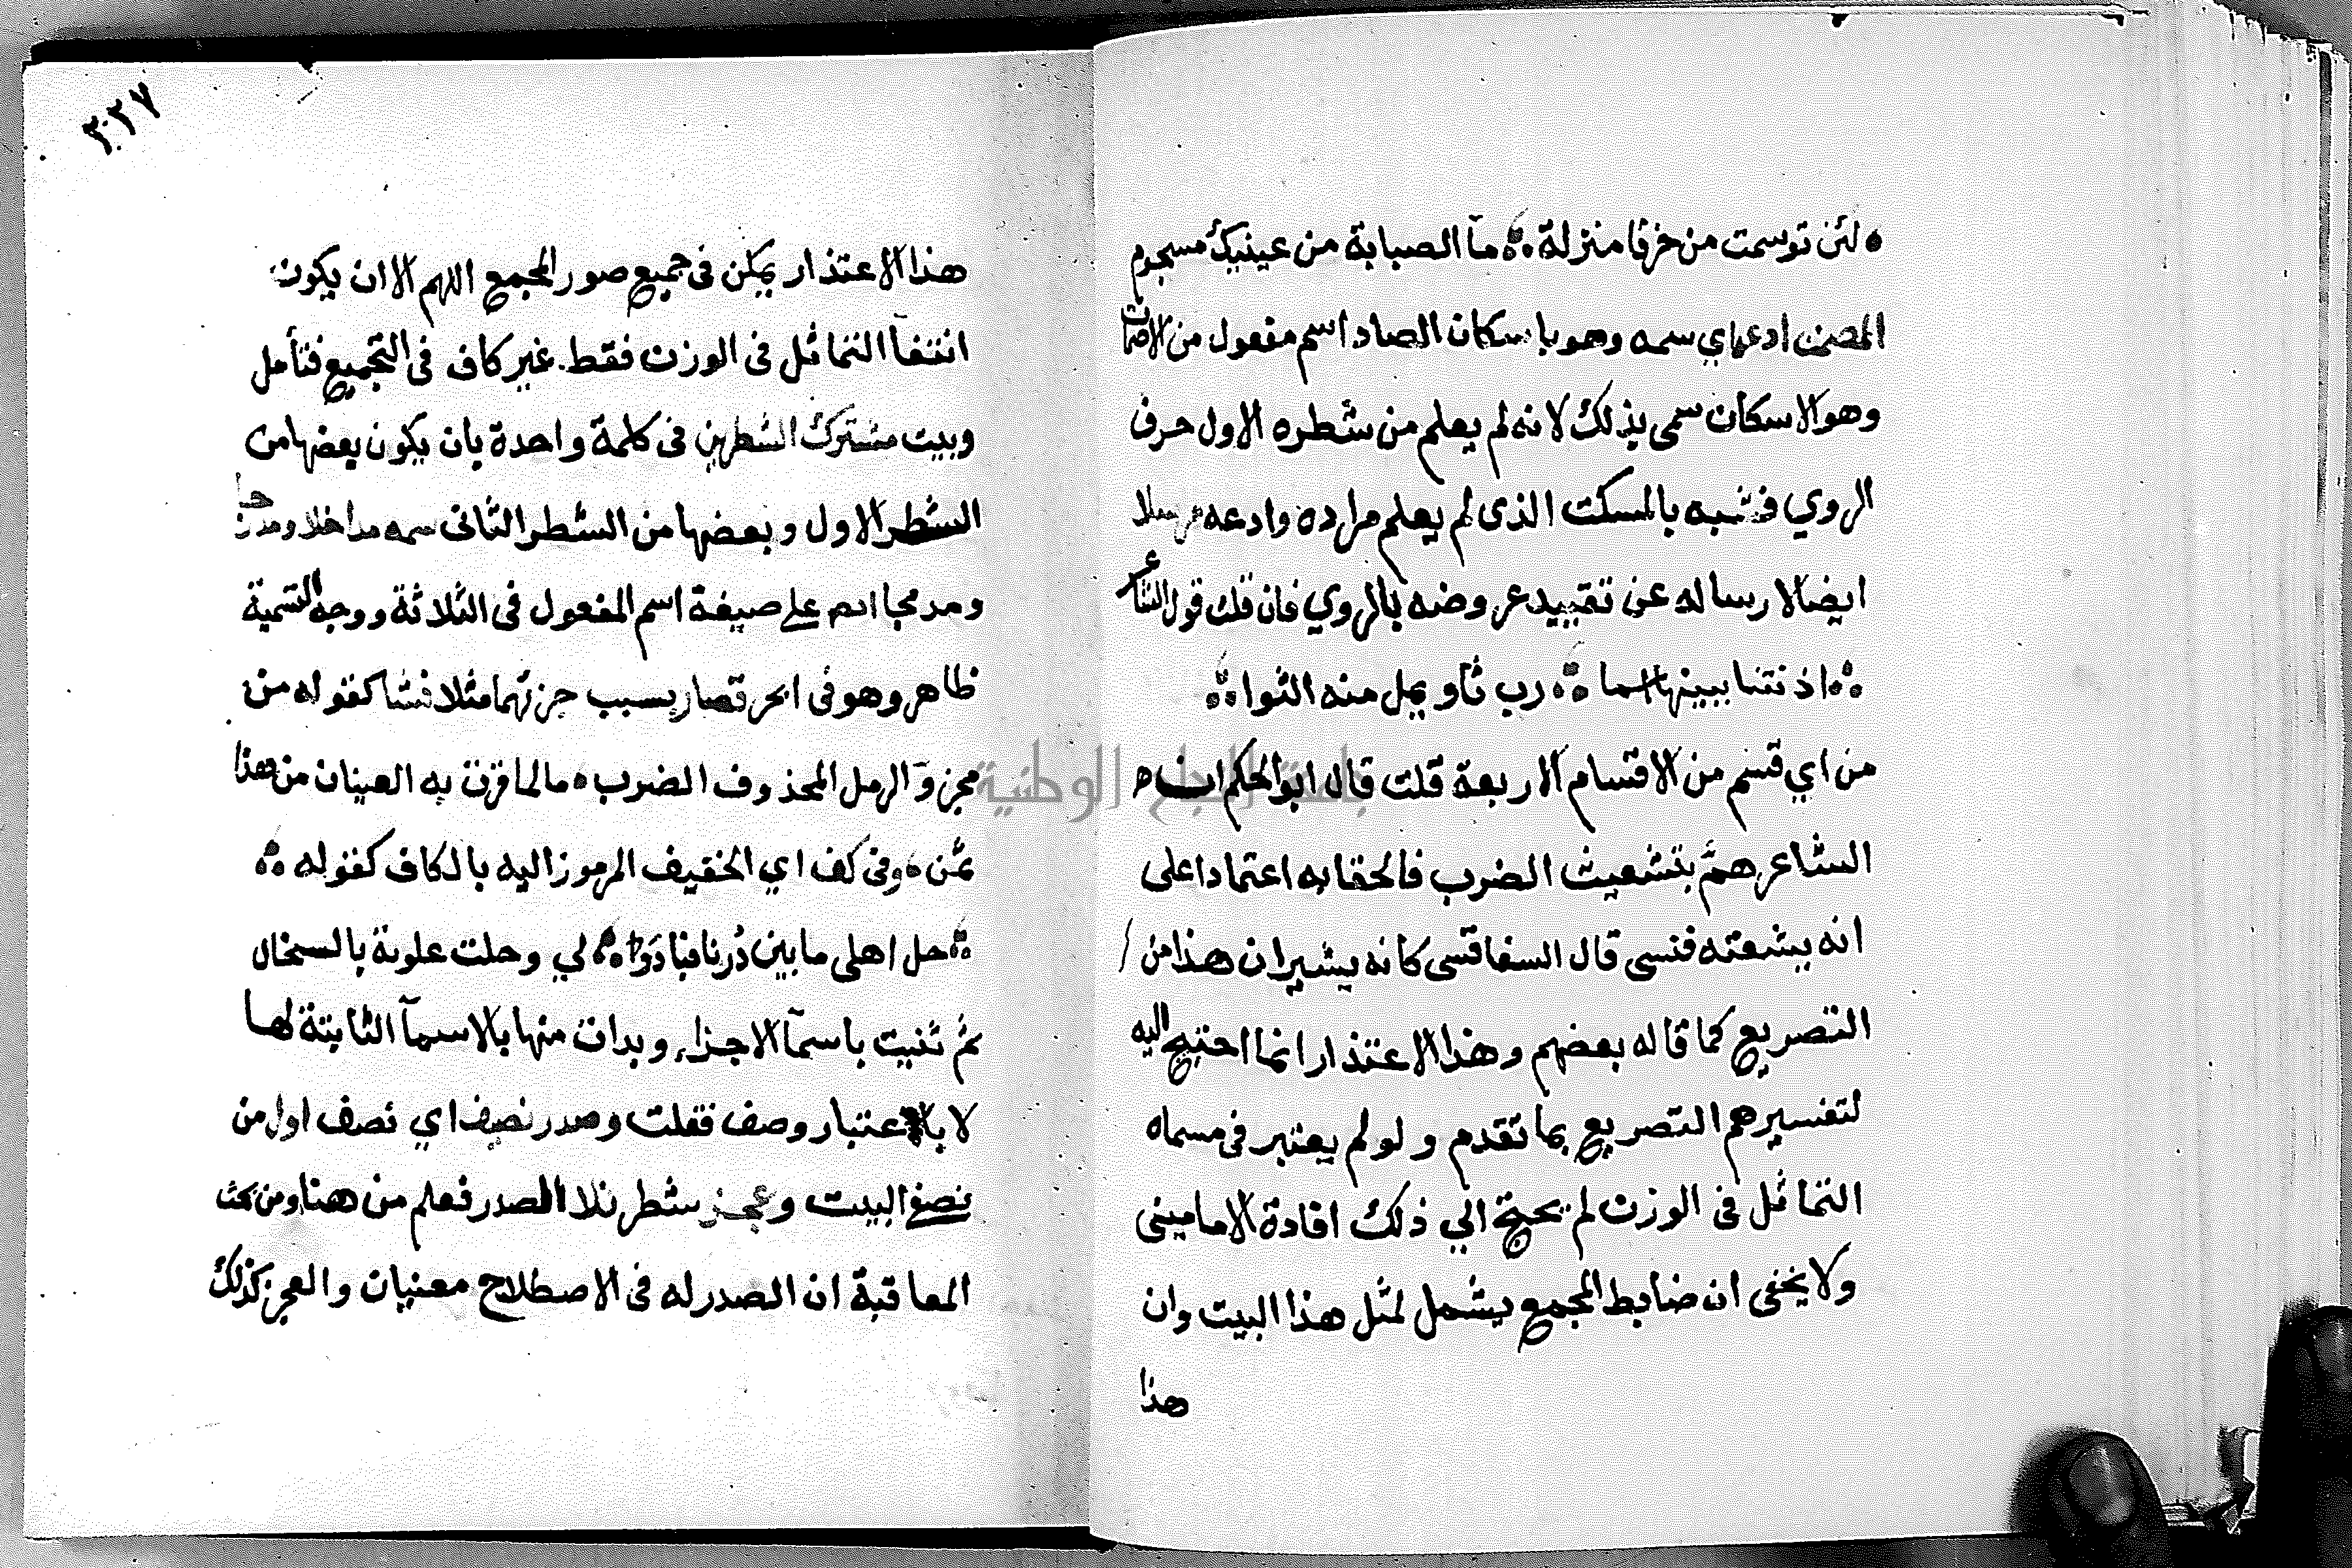 لئن توسمت من خرقا منزلة ما الصبابة من عينيك مسجوم
المصمت ادعه اي سمه وهو باسكان الصاد اسم مفعول من الاصمات
وهو الاسكان سمى بذلك لانه لم يعلم من شطره الاول حرف
الروي فشبه بالمسكت الذى لم يعلم مراده وادعه مرسلا
ايضا لارساله عن تقييد عروضه بالروي فان قلت قول الشاعر
اذنتنا ببينها اسما رب ثاو يمل منه الثوا
من اي قسم من الاقسام الاربعة قلت قال ابو الحكم ان هـ
الشاعر هم بتشعيث الضرب فالحقا به اعتمادا على
انه يشعثه فنسى قال السفاقسى كانه يشير ان هذا من
التصريع كما قاله بعضهم وهذا الاعتذار انما احتيج اليه
لتفسيرهم التصريع بما تقدم ولو لم يعتبر فى مسماه
التماثل فى الوزن لم يحتج الي ذلك افادة الاماميني
ولا يخفى ان ضابط المجمع يشمل لمثل هذا البيت وان
هذا
٢٢٧
هذا الاعتذار يمكن فى جميع صور المجمع اللهم الا ان يكون
انتفآ التماثل فى الوزن فقط غير كاف فى التجميع فتأمل
وبيت مشترك الشطرين فى كلمة واحدة بان يكون بعضها من
الشطر الاول وبعضها من الشطر الثانى سمه مداخلا ومدرجا
ومدمجا على صيغة اسم المفعول فى الثلاثة ووجه التسمية
ظاهر وهو فى ابحر قصار بسبب جزئهما مثلا فشا كقوله من
مجزوّ الرمل المحذوف الضرب ما لما قرت به العينان من هذا
ثمن وفى كف اي الخفيف المرموز اليه بالكاف كقوله
حل اهلى ما بين دُرنا فبادَوا لي وحلت علوية بالسخال
ثم ثنيت باسمآ الاجزاء وبدات منها بالاسمآ الثابتة لها
لا باعتبار وصف فقلت وصدر نصيف اي نصف اول من
نصفي البيت وعجز شطر تلا الصدر فعلم من هنا ومن بحث
المعاقبة ان الصدر له فى الاصطلاح معنيان والعجز كذلك